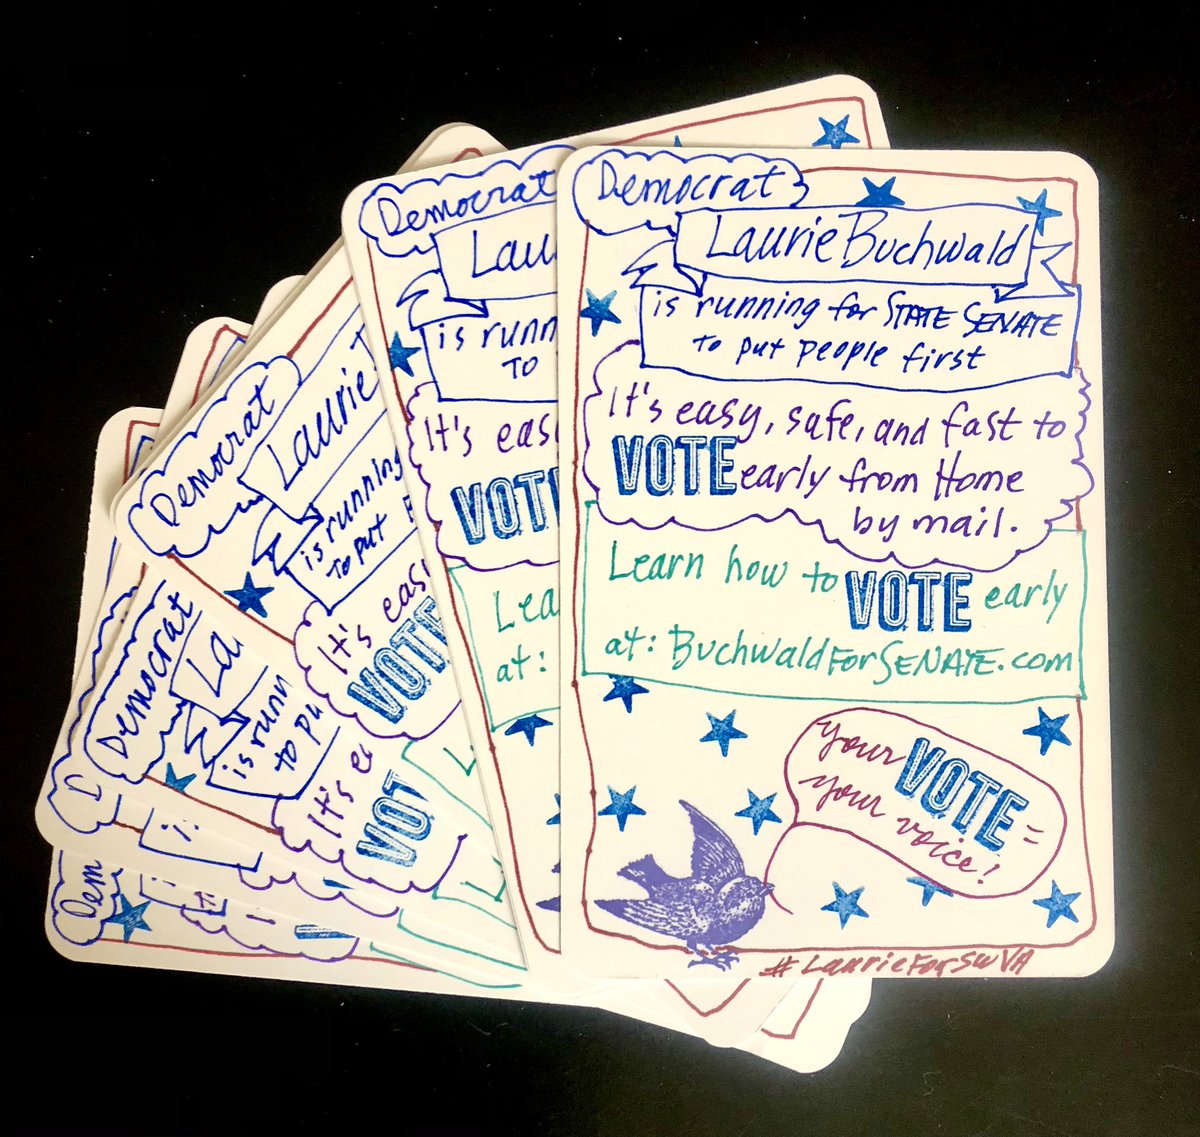 Democrat
Laurie Buchwald
is running for STATE SENATE
to put people first
It's easy, safe, and fast to
VOTE early from Home
by mail.
Learn how to VOTE early
at: BuchwaldForSENATE.com
your VOTE =
your voice!
#LaurieForSWVA
Democrat
Lau
is runn
TO
It's easi
VOTE
Lea
at:
Democrat
Laurie
is running
to put
It's easy
VOTE
Democrat
La
is runn
to pu
It's e
VOT
D
Dem